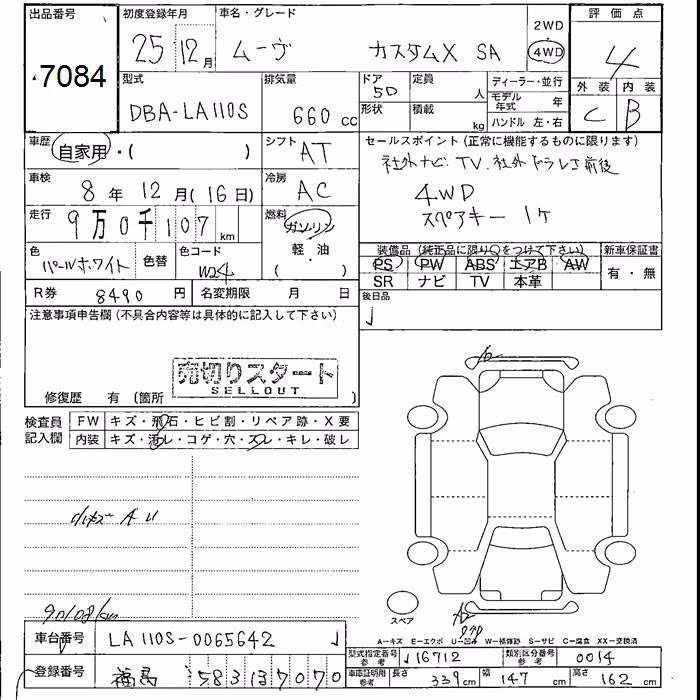 出品番号 初度登録年月 車名・グレード 2WD 評価点
7084 25 12月 ムーヴ カスタムX SA 4WD 4
型式 排気量 ドア 5D 定員 人 ディーラー・並行 外装 内装
DBA-LA110S 660 cc 形状 積載 kg モデル年式 年 C B
ハンドル 左・右
車歴 自家用・( ) シフト AT セールスポイント (正常に機能するものに限ります)
社外ナビ TV 社外ドラレコ前後
車検 8年 12月(16日) 冷房 AC 4WD
走行 9万0千107 km 燃料 ガソリン スペアキー 1ケ
軽・油
( )
色 パールホワイト 色替 色コード W24 装備品 (純正品に限り○をつけて下さい) 新車保証書
PS PW ABS エアB AW 有・無
SR ナビ TV 本革
R券 8490円 名変期限 月 日 後日品
注意事項申告欄 (不具合内容等は具体的に記入して下さい)
売切りスタート
SELLOUT
修復歴 有 (箇所 )
検査員記入欄 FW キズ・飛石・ヒビ割・リペア跡・X要
内装 キズ・汚レ・コゲ・穴・スレ・キレ・破レ
小キズ A U
90108km
スペア
A−キズ E−エクボ U−凹ミ W−補修跡 S−サビ C−腐食 XX−交換済
車台番号 LA110S-0065642 型式指定番号 参考 16712 類別区分番号 参考 0014
登録番号 福島 583 ま 7070 車庫証明用 参考 長さ 339cm 幅 147cm 高さ 162cm